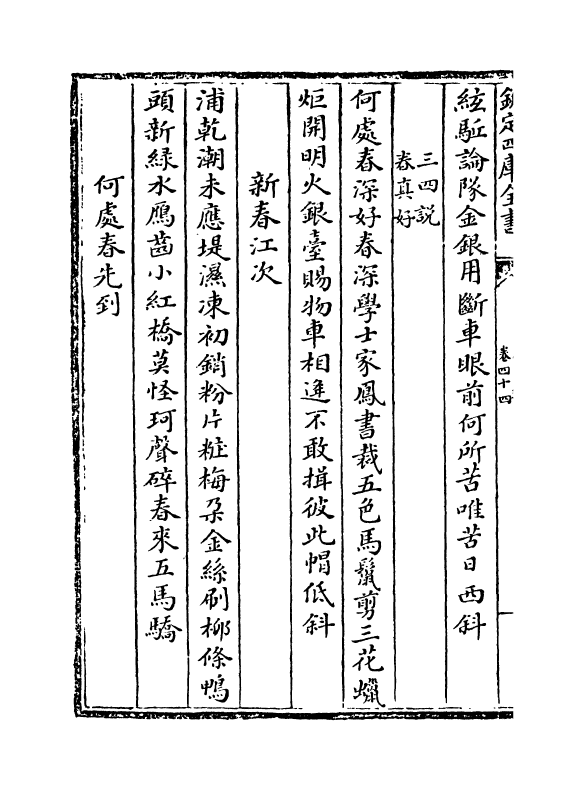 欽定四庫全書
卷四十四
絃駈論隊金銀用斷車眼前何所苦唯苦日西斜
三四説
春真好
何處春深好春深學士家鳳書裁五色馬鬛剪三花蠟
炬開明火銀臺賜物車相逢不敢揖彼此帽低斜
新春江次
浦乾潮未應堤濕凍初銷粉片粧梅朶金絲刷栁條鴨
頭新緑水鴈齒小紅橋莫怪珂聲碎春來五馬驕
何處春先到